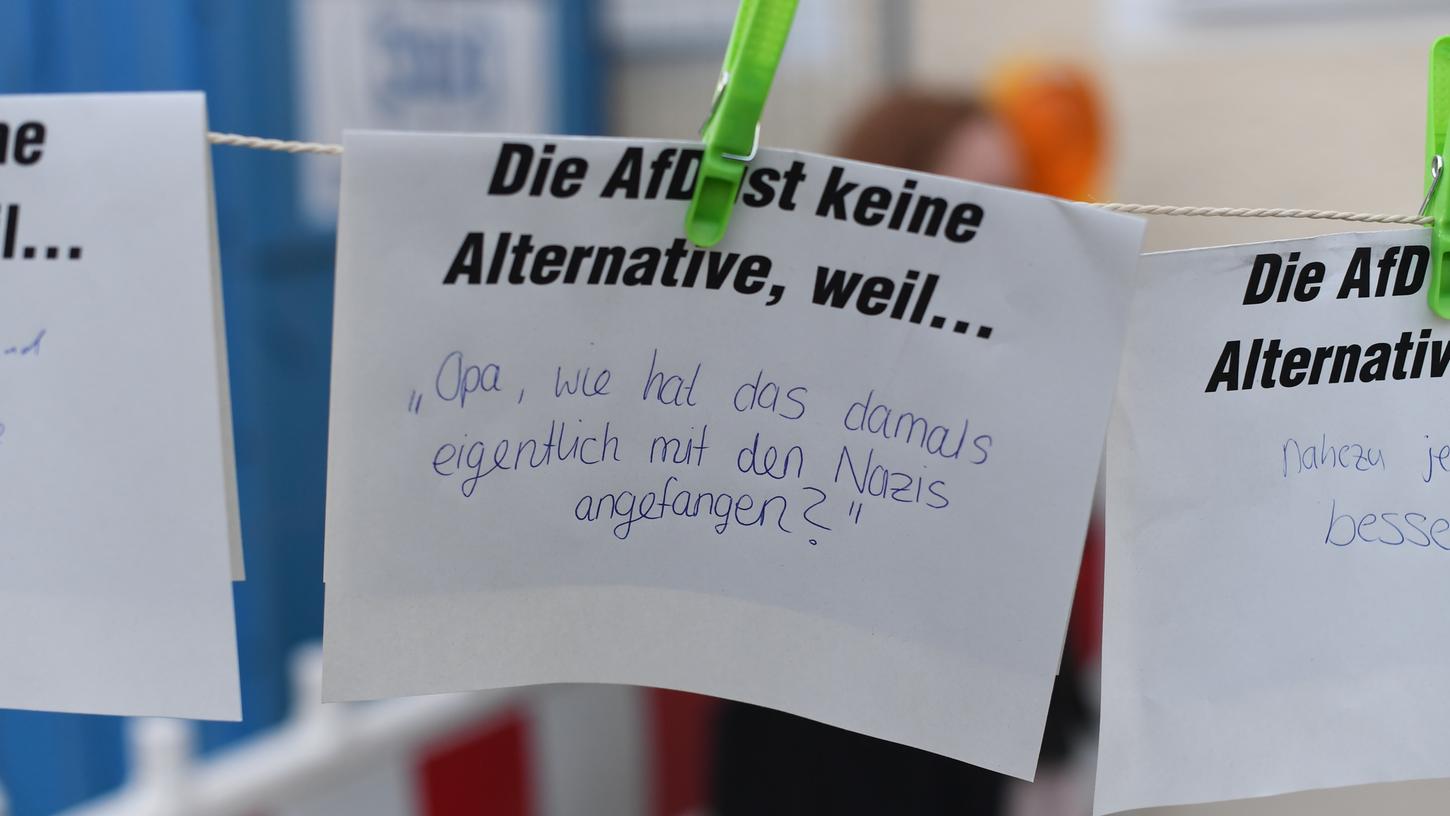 ne
l...
nd
Die AfD ist keine
Alternative, weil...
„Opa, wie hat das damals
eigentlich mit den Nazis
angefangen?"
Die AfD
Alternativ
nahezu je
besse